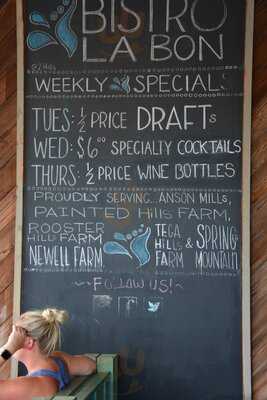 BISTRO
LA BON
WEEKLY SPECIALS
TUES: 1/2 PRICE DRAFTS
WED: $6.00 SPECIALTY COCKTAILS
THURS: 1/2 PRICE WINE BOTTLES
PROUDLY SERVING... ANSON MILLS,
PAINTED HILLS FARM,
ROOSTER HILL FARM
NEWELL FARM
TEGA HILLS FARM & SPRING MOUNTAIN
~FOLLOW US!~